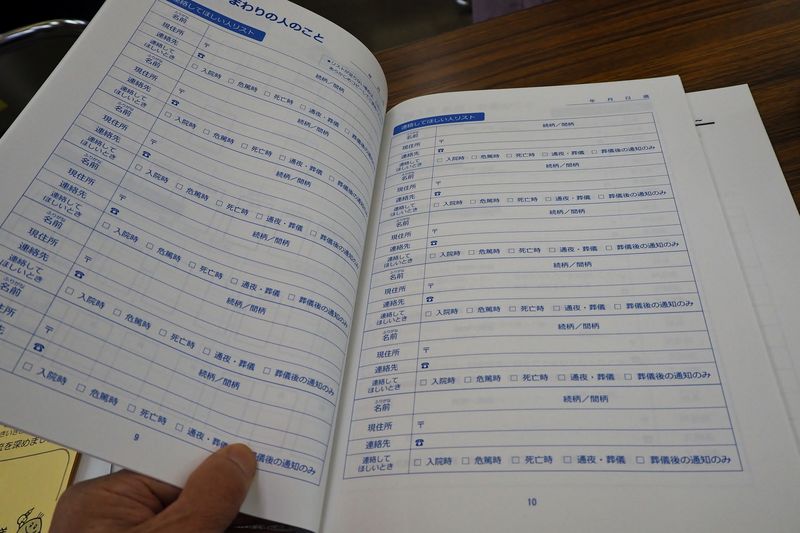 まわりの人のこと
絡してほしい人リスト
ふりがな
名前
続柄／間柄
現住所
〒
連絡先
☎
連絡して
ほしいとき
□ 入院時 □ 危篤時 □ 死亡時 □ 通夜・葬儀
ふりがな
名前
続柄／間柄
現住所
〒
連絡先
☎
連絡して
ほしいとき
□ 入院時 □ 危篤時 □ 死亡時 □ 通夜・葬儀 □ 葬儀後の通知のみ
ふりがな
名前
続柄／間柄
現住所
〒
連絡先
☎
連絡して
ほしいとき
□ 入院時 □ 危篤時 □ 死亡時 □ 通夜・葬儀 □ 葬儀後の通知のみ
ふりがな
名前
続柄／間柄
現住所
〒
連絡先
☎
連絡して
ほしいとき
□ 入院時 □ 危篤時 □ 死亡時 □ 通夜・葬儀 □ 葬儀後の通知のみ
ふりがな
名前
続柄／間柄
現住所
〒
連絡先
☎
連絡して
ほしいとき
□ 入院時 □ 危篤時 □ 死亡時 □ 通夜・葬儀 □ 葬儀後の通知のみ
続柄／間柄
〒
☎
□ 入院時 □ 危篤時 □ 死亡時 □ 通夜・葬儀 □ 葬儀後の通知のみ
9
年 月 日 歳
連絡してほしい人リスト
ふりがな
名前
続柄／間柄
現住所
〒
連絡先
☎
連絡して
ほしいとき
□ 入院時 □ 危篤時 □ 死亡時 □ 通夜・葬儀 □ 葬儀後の通知のみ
ふりがな
名前
続柄／間柄
現住所
〒
連絡先
☎
連絡して
ほしいとき
□ 入院時 □ 危篤時 □ 死亡時 □ 通夜・葬儀 □ 葬儀後の通知のみ
ふりがな
名前
続柄／間柄
現住所
〒
連絡先
☎
連絡して
ほしいとき
□ 入院時 □ 危篤時 □ 死亡時 □ 通夜・葬儀 □ 葬儀後の通知のみ
ふりがな
名前
続柄／間柄
現住所
〒
連絡先
☎
連絡して
ほしいとき
□ 入院時 □ 危篤時 □ 死亡時 □ 通夜・葬儀 □ 葬儀後の通知のみ
ふりがな
名前
続柄／間柄
現住所
〒
連絡先
☎
連絡して
ほしいとき
□ 入院時 □ 危篤時 □ 死亡時 □ 通夜・葬儀 □ 葬儀後の通知のみ
ふりがな
名前
続柄／間柄
現住所
〒
連絡先
☎
連絡して
ほしいとき
□ 入院時 □ 危篤時 □ 死亡時 □ 通夜・葬儀 □ 葬儀後の通知のみ
10
を深めまし